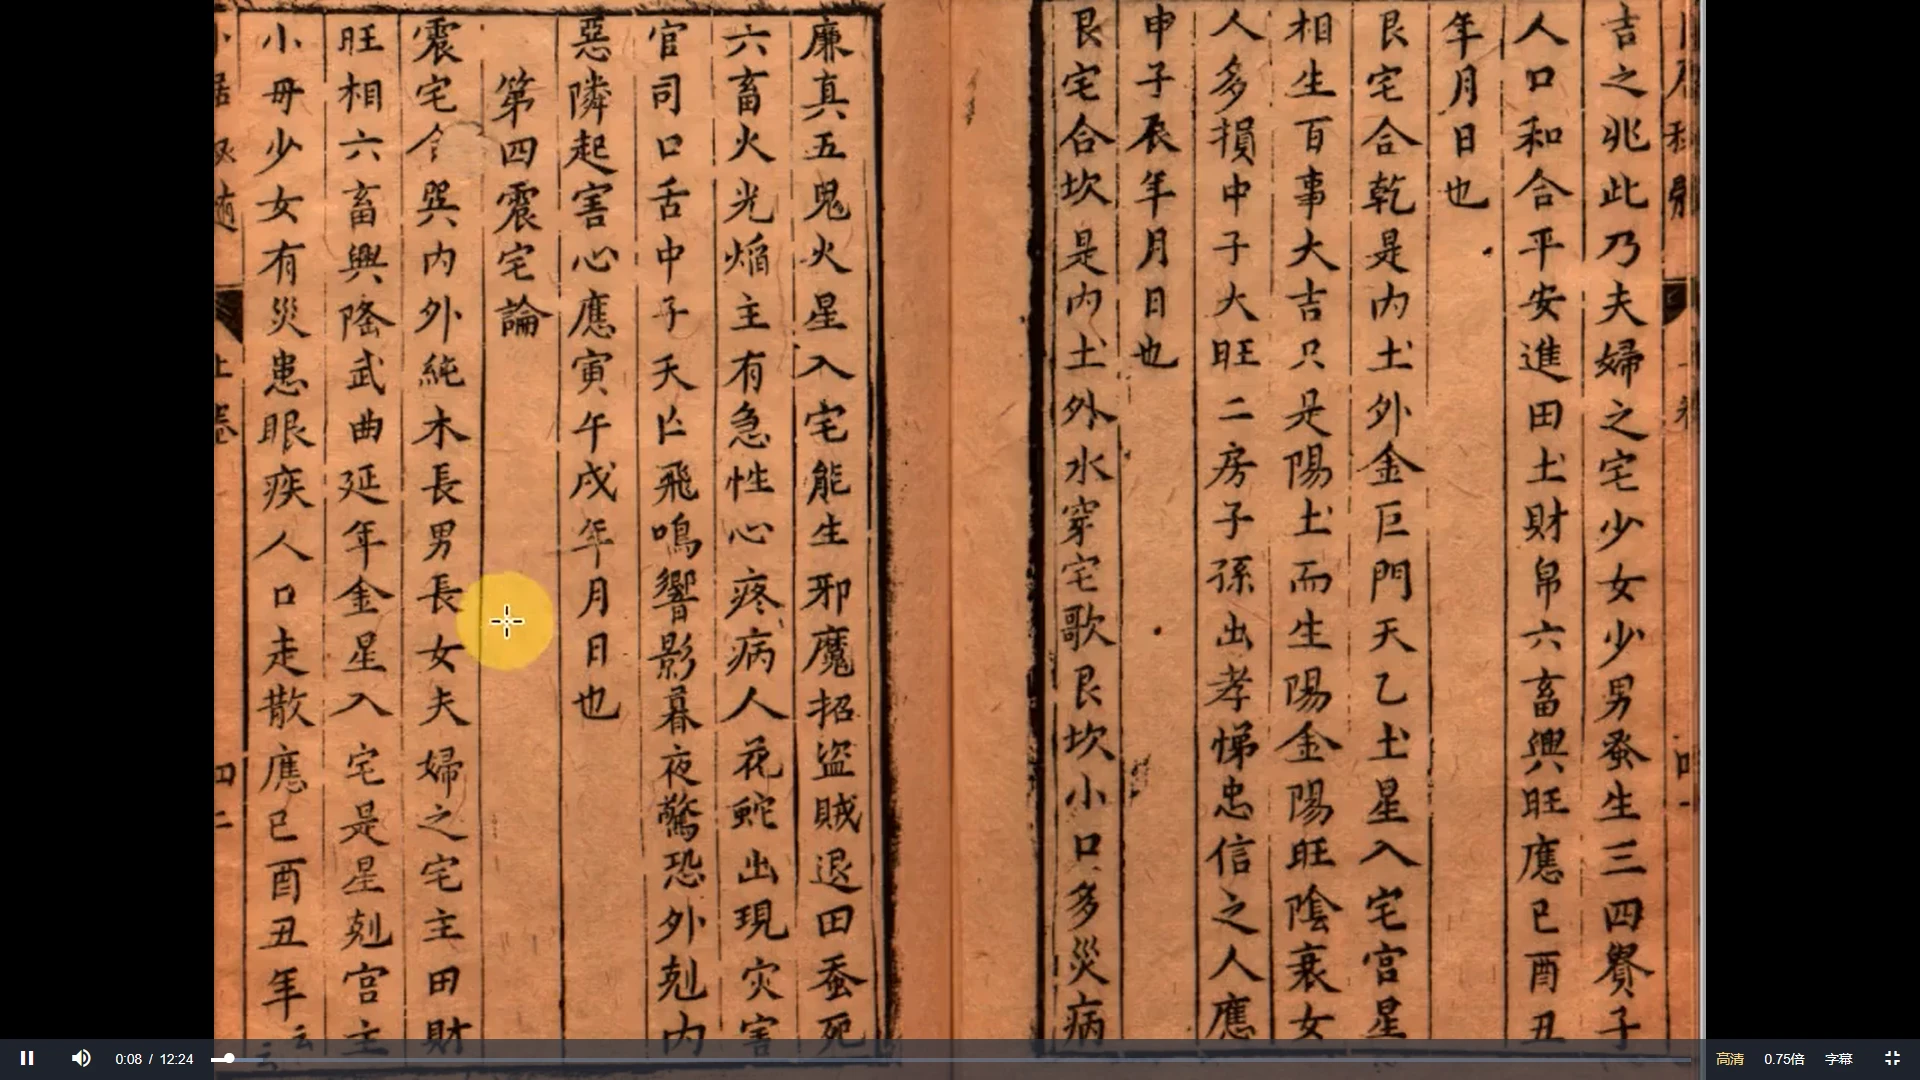 吉之兆此乃夫婦之宅少女少男發生三四賢子
人口和合平安進田土財帛六畜興旺應巳酉丑
年月日也
艮宅合乾是內土外金巨門天乙土星入宅宮星
相生百事大吉只是陽土而生陽金陽旺陰衰女
人多損中子大旺二房子孫出孝悌忠信之人應
申子辰年月日也
艮宅合坎是內土外水穿宅歌艮坎小口多災病
廉真五鬼火星入宅能生邪魔招盜賊退田蚕死
六畜火光焰主有急性心疼病人花蛇出現灾害
官司口舌中子夭亡飛鳴響影暮夜驚恐外剋內
惡隣起害心應寅午戌年月日也
第四震宅論
震宅合巽內外純木長男長女夫婦之宅主田財
旺相六畜興隆武曲延年金星入宅是星剋宮主
小母少女有災患眼疾人口走散應巳酉丑年云云
上卷
四二
0:08 / 12:24
高清
0.75倍
字幕